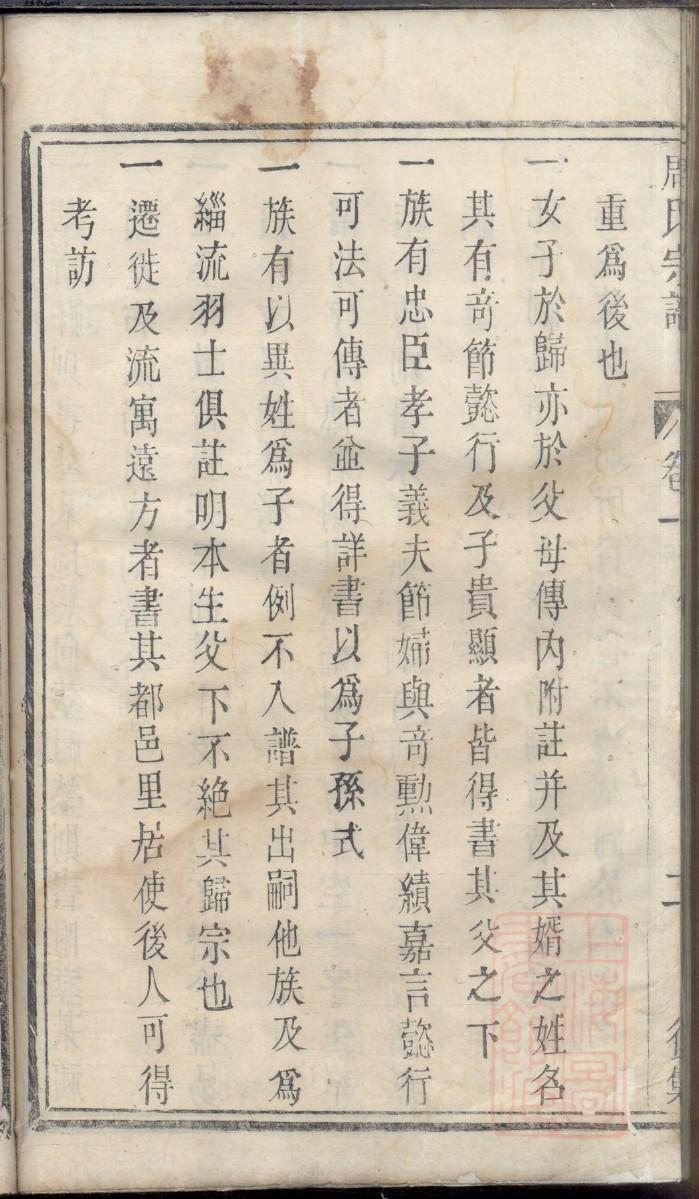 周氏宗譜
卷一
二
重爲後也
一女子於歸亦於父母傳內附註并及其婿之姓名
其有奇節懿行及子貴顯者皆得書其父之下
一族有忠臣孝子義夫節婦與奇勲偉績嘉言懿行
可法可傳者並得詳書以爲子孫式
一族有以異姓爲子者例不入譜其出嗣他族及爲
緇流羽士俱註明本生父下不絶其歸宗也
一遷徙及流寓遠方者書其都邑里居使後人可得
考訪